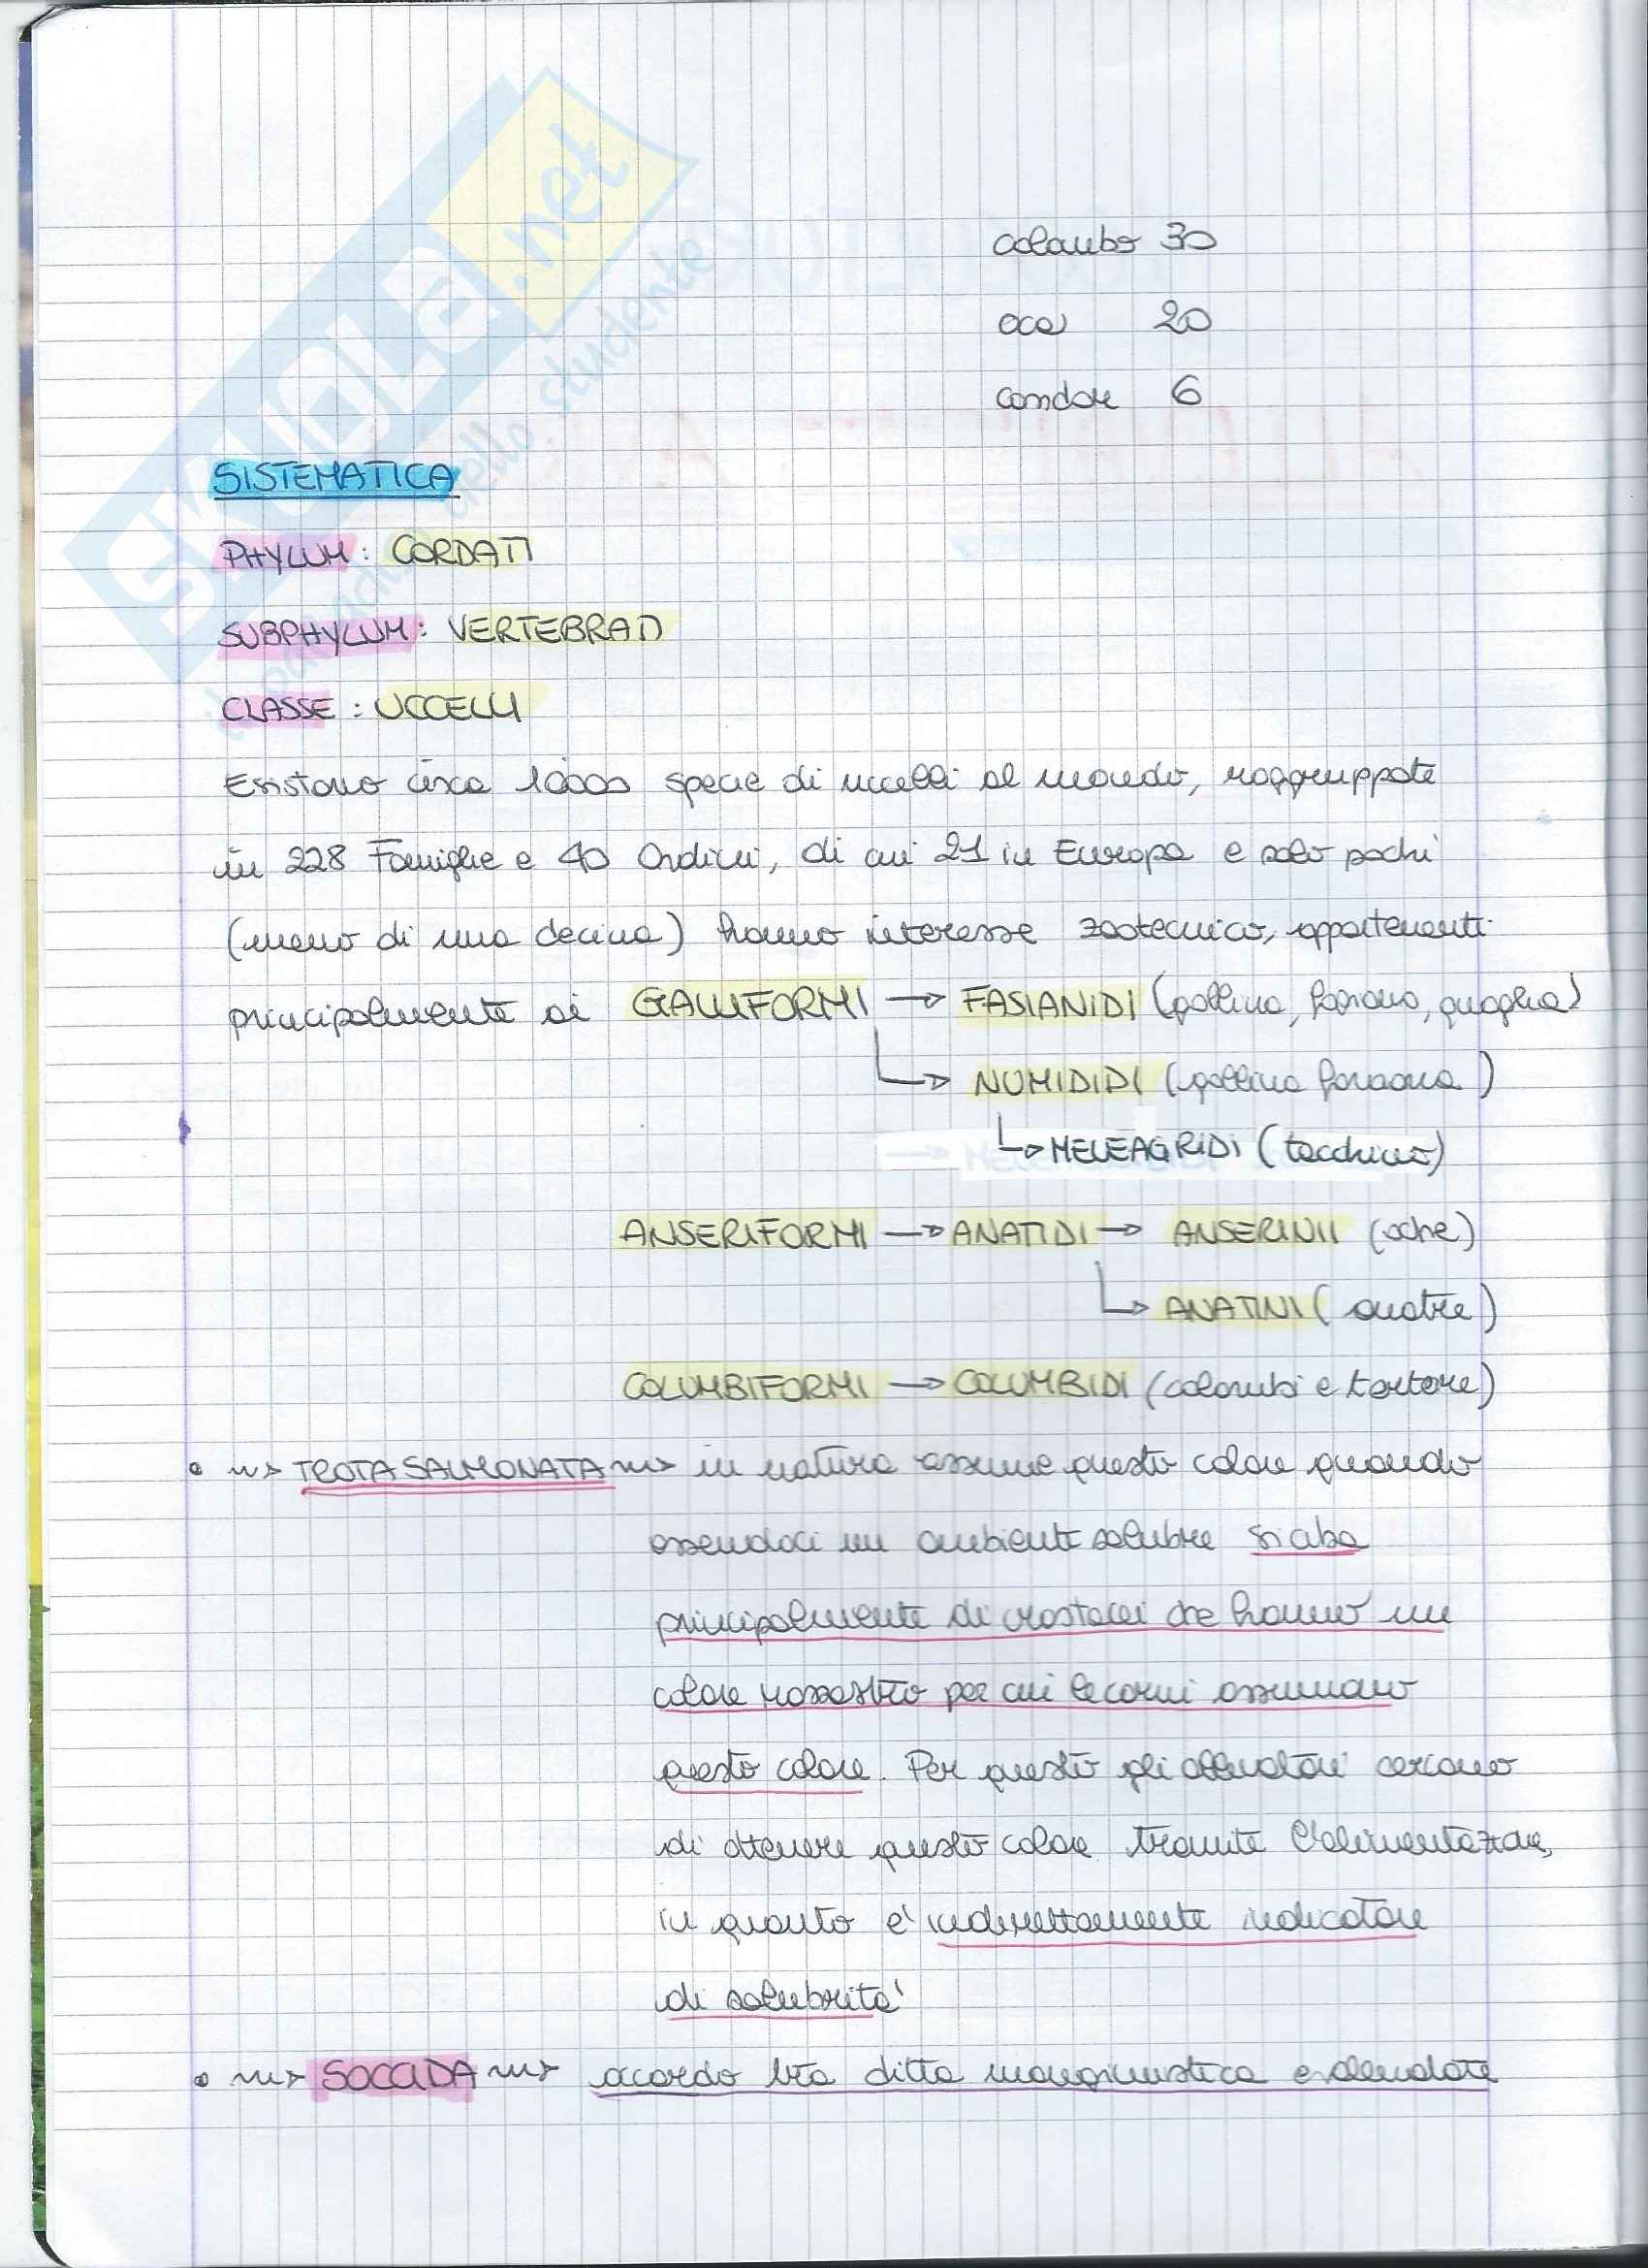 colombo 30
oca 20
condor 6
SISTEMATICA
PHYLUM: CORDATI
SUBPHYLUM: VERTEBRATI
CLASSE: UCCELLI
Esistono circa 10000 specie di uccelli al mondo, raggruppate
in 228 Famiglie e 40 Ordini, di cui 21 in Europa e solo pochi
(meno di una decina) hanno interesse zootecnico, appartenenti
principalmente ai GALLIFORMI → FASIANIDI (gallina, fagiano, quaglia)
→ NUMIDIDI (gallina faraona)
→ MELEAGRIDI (tacchino)
ANSERIFORMI → ANATIDI → ANSERINII (oche)
→ ANATINI (anatre)
COLUMBIFORMI → COLUMBIDI (colombi e tortore)
• ~> TROTA SALMONATA ~> in natura assume questo colore quando
essendoci un ambiente salubre si ciba
principalmente di crostacei che hanno un
colore rossastro per cui le carni assumano
questo colore. Per questo gli allevatori cercano
di ottenere questo colore tramite l'alimentazione,
in quanto e' indirettamente indicatore
di salubrita'
• ~> SOCCIDA ~> accordo tra ditta mangimistica e allevatore
SKUOLA.net
il paradiso dello studente